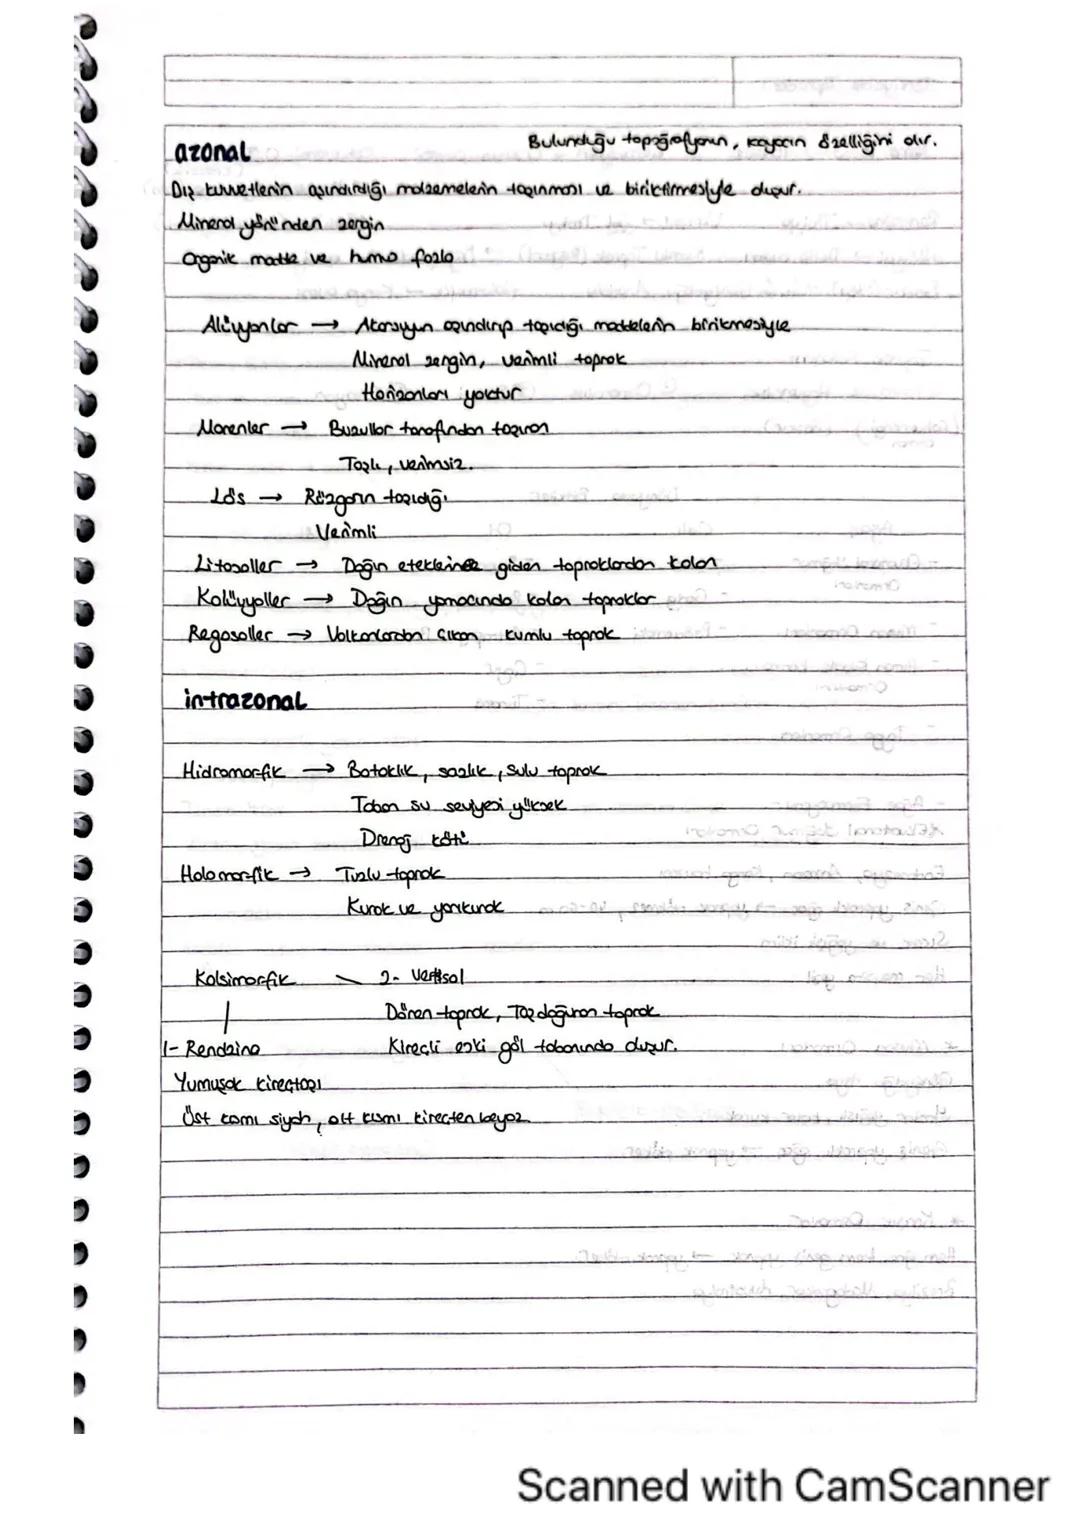 azonal
Bulunduğu topoğrafyanın, kayacın özelliğini alır.
Dış kuvvetlerin aşındırdığı malzemelerin taşınması ve biriktirmesiyle oluşur.
Mineral yönünden zengin
Organik madde ve humus fazla
Alüvyonlar → Akarsuyun aşındırıp taşıdığı maddelerin birikmesiyle
Mineral zengin, verimli toprak
Horizonları yoktur
Morenler → Buzullar tarafından taşınan
Taşlı, verimsiz.
Lös → Rüzgarın taşıdığı
Verimli
Litosoller → Dağın eteklerine giden topraklardan kalan
Kolüvyaller → Dağın yamacında kalan topraklar
Regosoller → Volkanlardan çıkan kumlu toprak
intrazonal
Hidromorfik → Bataklık, sazlık, sulu toprak
Taban su seviyesi yüksek
Drenaj kötü
Halomorfik → Tuzlu toprak
Kurak ve yarıkurak
Kalsimorfik 2- Vertisol
Dönen toprak, Taş doğuran toprak
1- Rendzina Kireçli eski göl tabanında oluşur.
Yumuşak kireçtaşı
Üst kısmı siyah, alt kısmı kireçten beyaz
Scanned with CamScanner